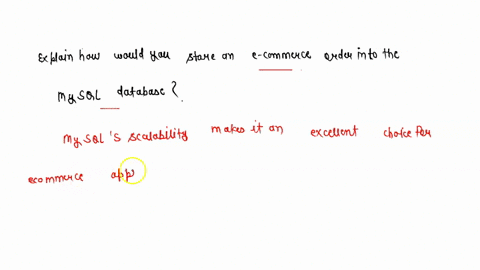 Explain how would you store an e-commerce order into the
MySQL database?
MySQL's scalability makes it an excellent choice for
ecommerce app